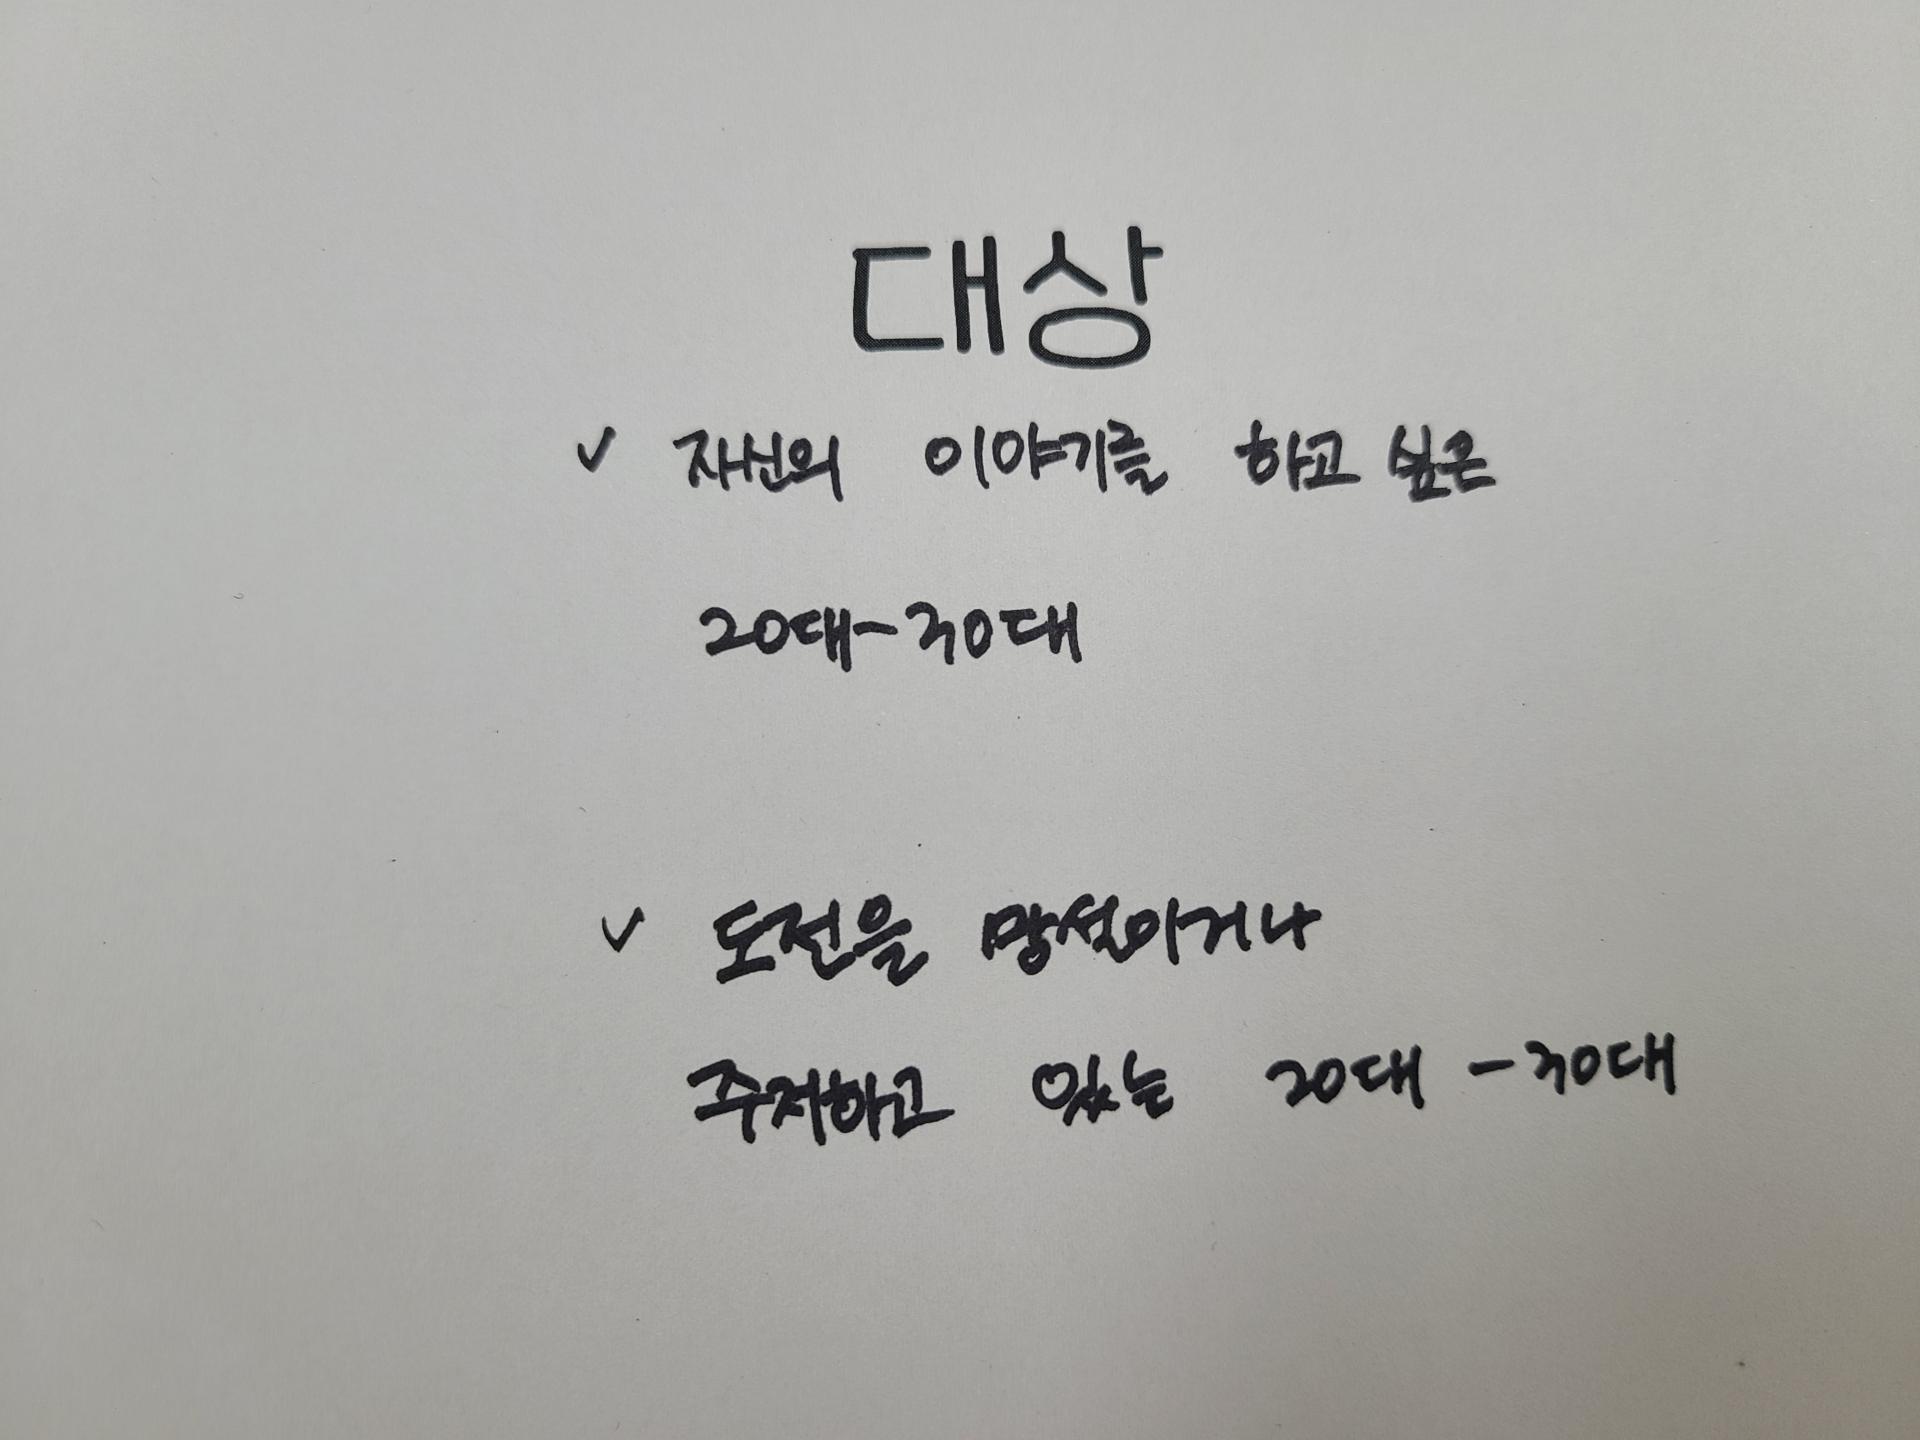 대상
✓ 자신의 이야기를 하고 싶은
20대-30대
✓ 도전을 망설이거나
주저하고 있는 20대 -30대